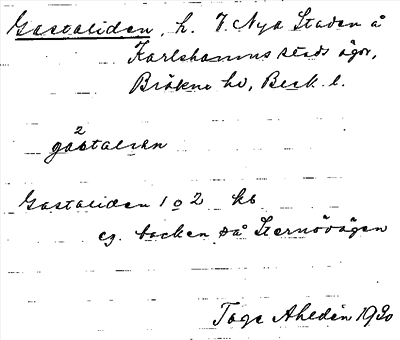 Gastaliden, h. i Nya Staden å
Karlshamns stads ägor,
Bräkne hd, Blek. l.
2
Gastaliden 1 o 2 kb
eg. backen på Sternövägen
Tage Ahldén 1930